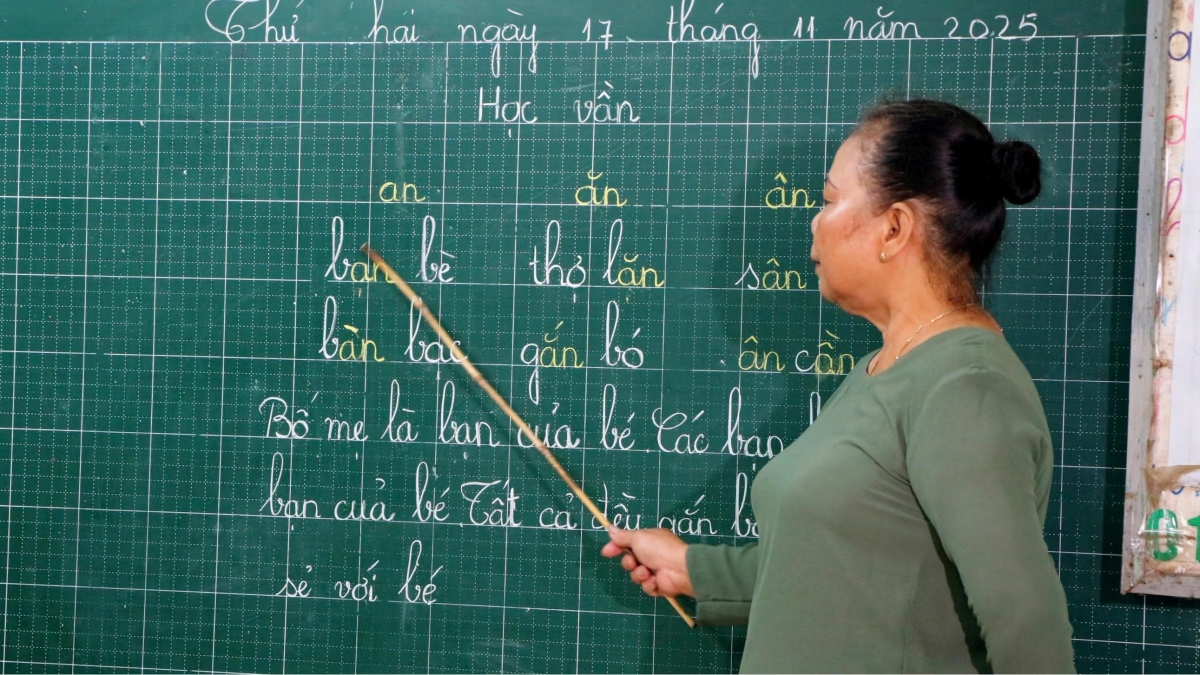 Thứ hai ngày 17 tháng 11 năm 2025
Học vần
an ăn ân
bạn bè thợ lăn sân
bàn bạc gắn bó ân cần
Bố mẹ là bạn của bé. Các bạn
bạn của bé. Tất cả đều gắn
sẻ với bé